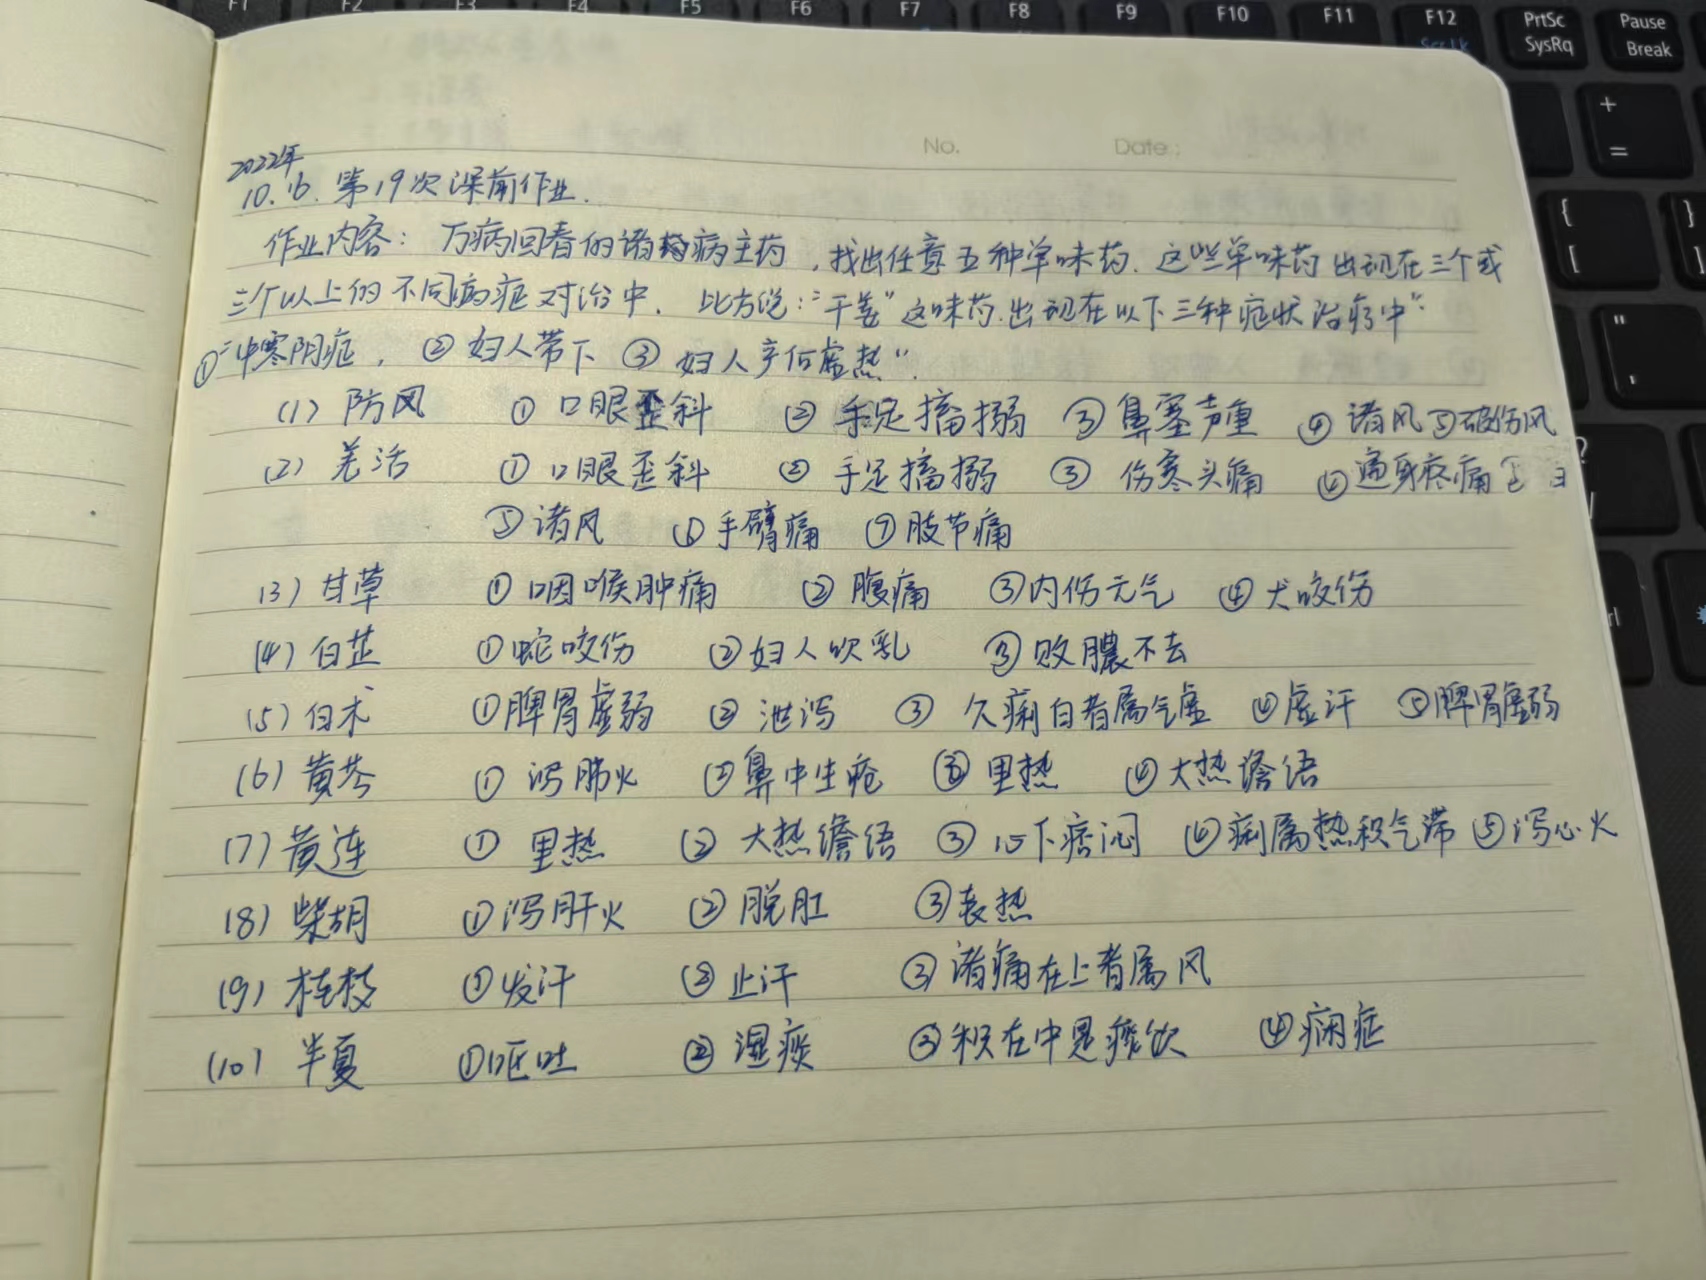 F1 F2 F3 F4 F5 F6 F7 F8 F9 F10 F11 F12 PrtSc SysRq Pause Break
No. Date:
2022年
10.16. 第19次课前作业.
作业内容: 万病回春的诸病主药,找出任意五种单味药. 这些单味药出现在三个或
三个以上的不同病症对治中. 比方说:“干姜”这味药.出现在以下三种症状治疗中“:
①“中寒阴症, ②妇人带下 ③妇人产后虚热".
(1) 防风 ①口眼歪斜 ②手足搐搦 ③鼻塞声重 ④诸风 ⑤破伤风
(2) 羌活 ①口眼歪斜 ②手足搐搦 ③伤寒头痛 ④遍身疼痛
⑤诸风 ⑥手臂痛 ⑦肢节痛
(3) 甘草 ①咽喉肿痛 ②腹痛 ③内伤元气 ④犬咬伤
(4) 白芷 ①蛇咬伤 ②妇人吹乳 ③败膿不去
(5) 白术 ①脾胃虚弱 ②泄泻 ③久痢白者属气虚 ④虚汗 ⑤脾胃虚弱
(6) 黄芩 ①泻肺火 ②鼻中生疮 ③里热 ④大热谵语
(7) 黄连 ①里热 ②大热谵语 ③心下痞闷 ④痢属热积气滞 ⑤泻心火
(8) 柴胡 ①泻肝火 ②脱肛 ③表热
(9) 桂枝 ①发汗 ②止汗 ③诸痛在上者属风
(10) 半夏 ①呕吐 ②湿痰 ③积在中是痰饮 ④痫症